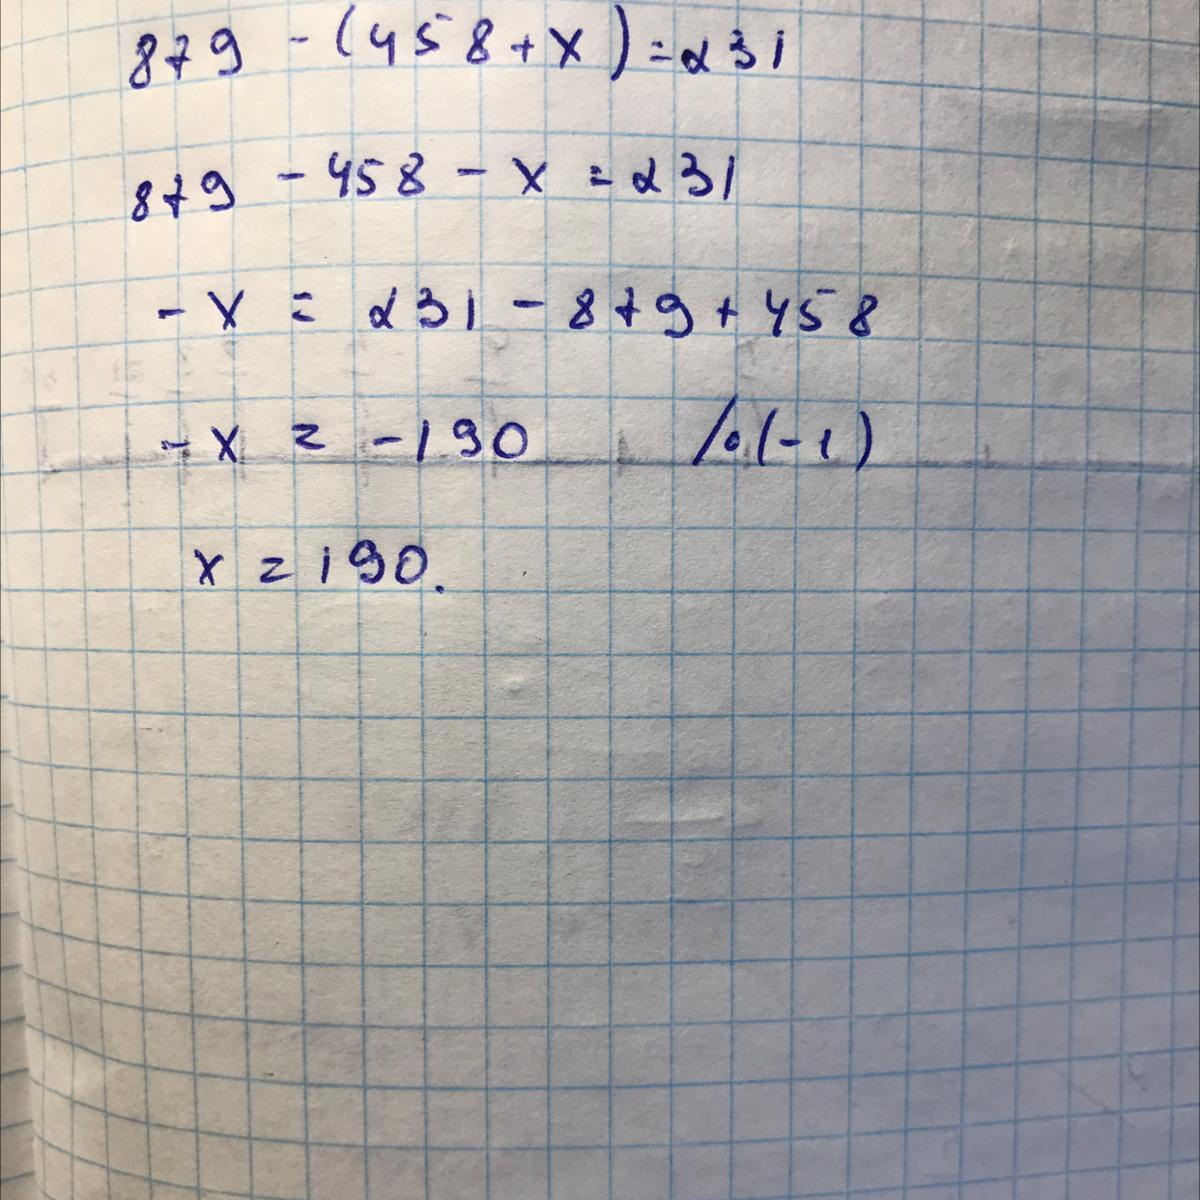 879 - (458 + x) = 231
879 - 458 - x = 231
- x = 231 - 879 + 458
- x = -190 /•(-1)
x = 190.